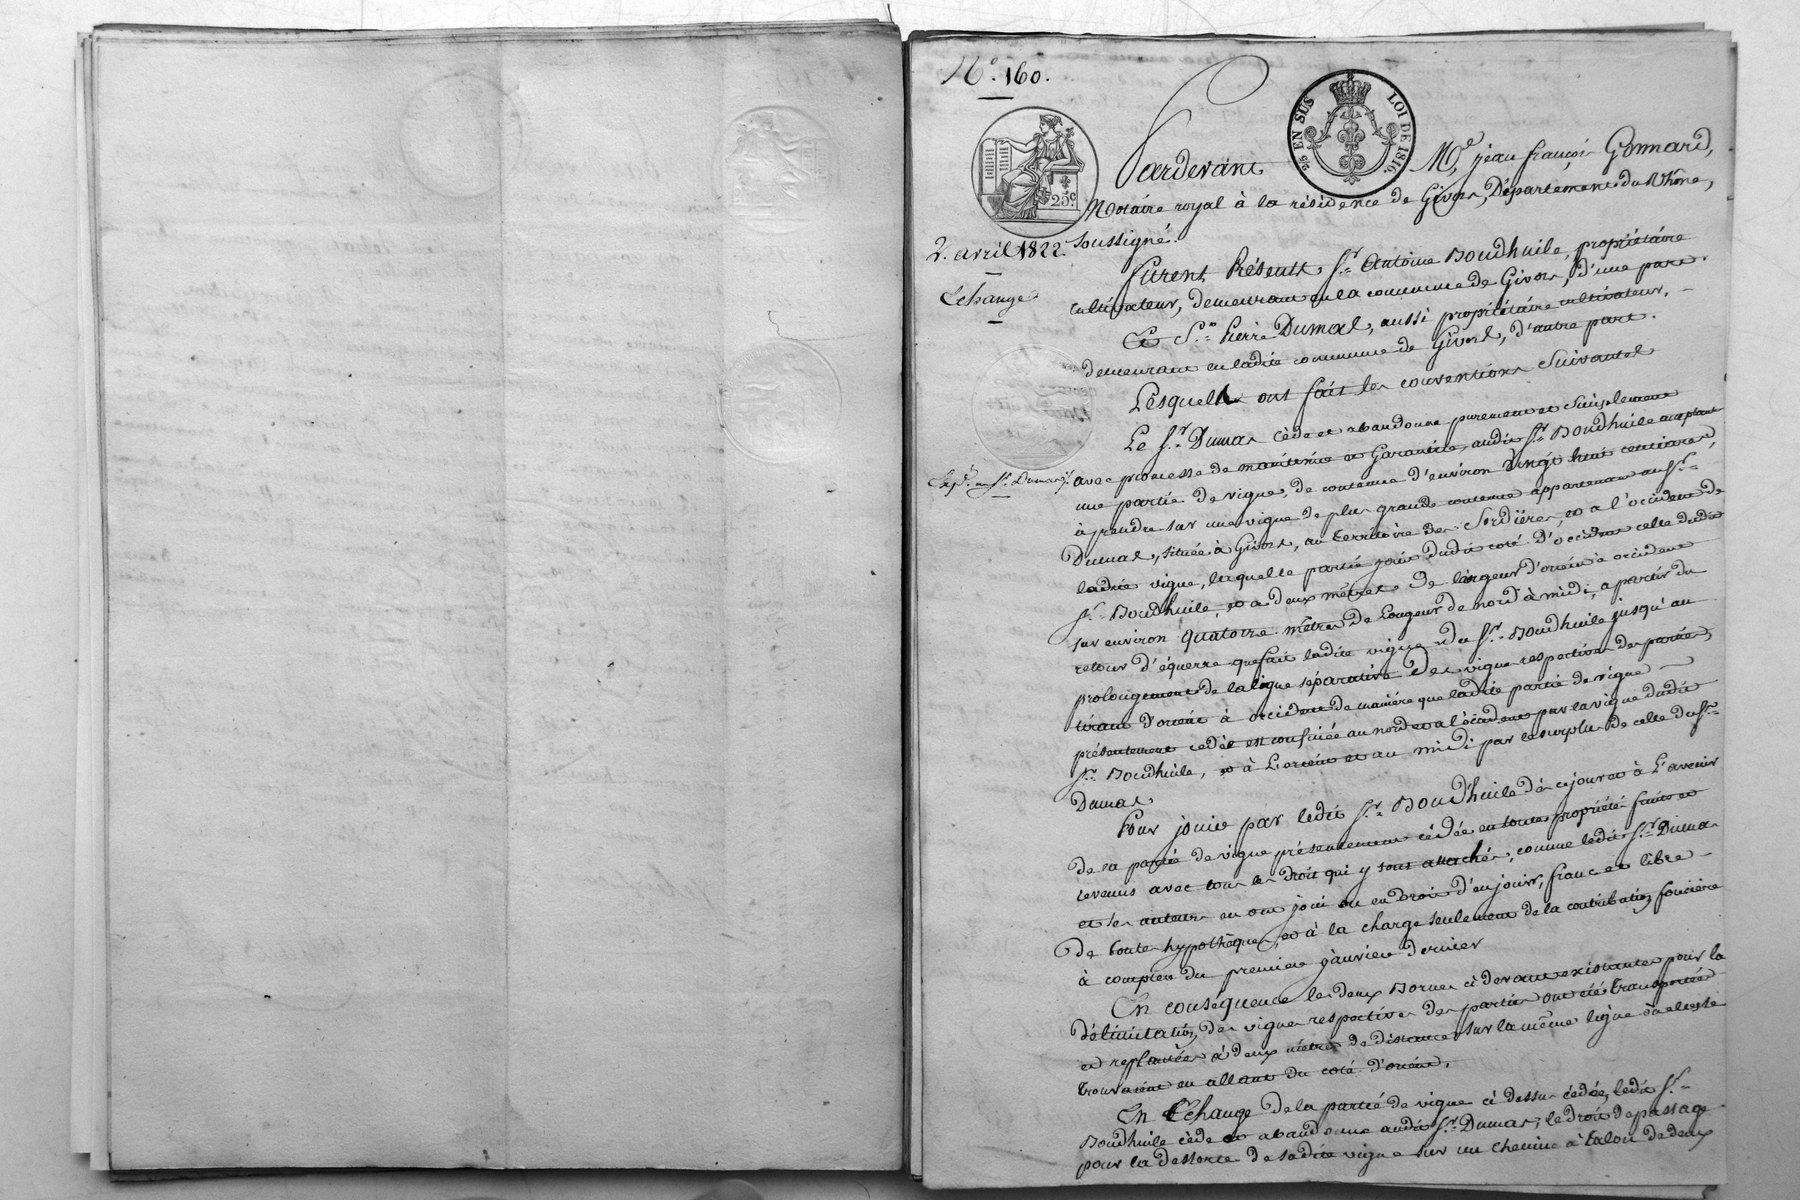 N.° 160.
2/5 EN SUS LOI DE 1816.
25c.
Pardevant Me. jean françois Gonnard,
Notaire royal à la résidence de Givors, Département du Rhône,
soussigné.
2. avril 1822.
Echange
furent Présents Sr. Antoine Boudhuile, propriétaire
cultivateur, demeurant en la commune de Givors, d'une part.
Et Sr. Pierre Dumas, aussi propriétaire cultivateur,
demeurant en ladite commune de Givors, d'autre part.
Lesquels ont fait les conventions suivantes
Le Sr. Dumas cède et abandonne purement et simplement
Exp. au Sr. Dumas
avec promesse de maintenue et Garantie, audit Sr. Boudhuile acceptant
une partie de vigne, de contenue d'environ vingt huit centiares,
à prendre sur une vigne de plus grande contenue appartenant au Sr.
Dumas, située à Givors, au territoire des Sordières, et a l'occident de
ladite vigne, laquelle partie joint dudit coté d'occident celle dudit
Sr. Boudhuile, et a deux mètres de largeur d'orient à occident
sur environ quatorze mètres de Longeur de nord à midi, a partir du
retour d'équerre que fait ladite vigne du Sr. Boudhuile jusqu'au
prolongement de la ligne séparative des vignes respectives des parties,
tirant d'orient à occident de manière que ladite partie de vigne
présentement cedée est confinée au nord et a l'occident par la vigne dudit
Sr. Boudhuile, et à L'orient et au midi par le surplus de celle du Sr.
Dumas.
Pour jouir par ledit Sr. Boudhuile dès ce jour et à L'avenir
de la partie de vigne présentement cédée en toute propriété fruits et
revenus avec tous les droits qui y sont attachés, comme ledit Sr. Dumas
et ses auteurs en ont joui ou eu droit d'en jouir, franc et libre
de toutes hypothèques, et à la charge seulement de la contribution foncière
à compter du premier janvier dernier
En conséquence les deux Bornes ci devant existantes pour la
délimitation des vignes respectives des parties ont été transportées
et replantées à deux mètres de distance sur la même ligne où elles se
trouvaient en allant du coté d'orient.
En Echange de la partie de vigne ci dessus cédée, ledit Sr.
Boudhuile cède et abandonne audit Sr. Dumas, le droit de passage
pour la desserte de sadite vigne sur un chemin à talon de deux